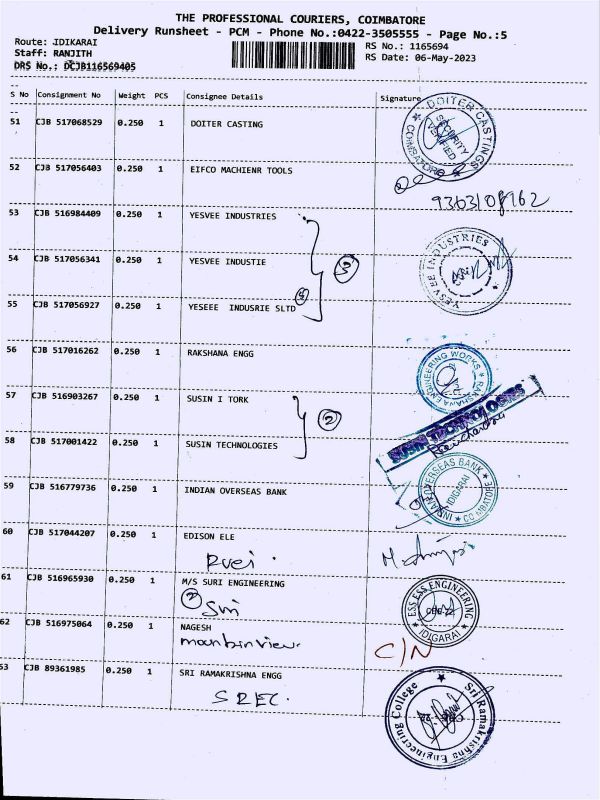 THE PROFESSIONAL COURIERS, COIMBATORE
Delivery Runsheet - PCM - Phone No.:0422-3505555 - Page No.:5
Route: JDIKARAI
RS No.: 1165694
Staff: RANJITH
RS Date: 06-May-2023
DRS No.: DCJB116569405
S No Consignment No Weight PCS Consignee Details Signature
51 CJB 517068529 0.250 1 DOITER CASTING
DOITER CASTINGS COIMBATORE SECURITY VERIFIED
52 CJB 517056403 0.250 1 EIFCO MACHIENR TOOLS
9363108962
53 CJB 516984409 0.250 1 YESVEE INDUSTRIES
54 CJB 517056341 0.250 1 YESVEE INDUSTIE
3
YESVEE INDUSTRIES
55 CJB 517056927 0.250 1 YESEEE INDUSRIE SLTD
56 CJB 517016262 0.250 1 RAKSHANA ENGG
RAKSHANA ENGINEERING WORKS
57 CJB 516903267 0.250 1 SUSIN I TORK
2
SUSIN TECHNOLOGIES
58 CJB 517001422 0.250 1 SUSIN TECHNOLOGIES
59 CJB 516779736 0.250 1 INDIAN OVERSEAS BANK
INDIAN OVERSEAS BANK IDIGARAI COIMBATORE
60 CJB 517044207 0.250 1 EDISON ELE
61 CJB 516965930 0.250 1 M/S SURI ENGINEERING
2 Suri
ESS ESS ENGINEERING IDIGARAI
62 CJB 516975064 0.250 1 NAGESH
C/N
53 CJB 89361985 0.250 1 SRI RAMAKRISHNA ENGG
SREC.
Sri Ramakrishna Engineering College